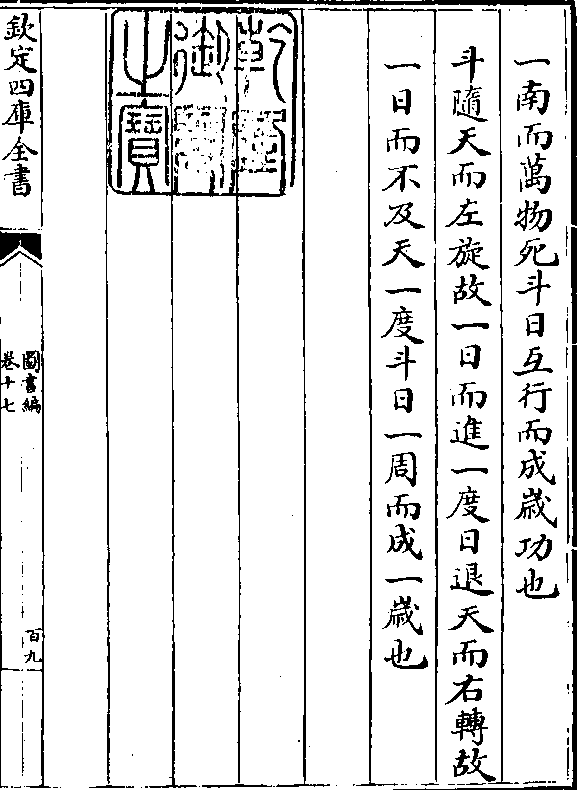 一南而萬物死斗日互行而成歲功也
斗隨天而左旋故一日而進一度日退天而右轉故
一日而不及天一度斗日一周而成一歲也
乾隆
御覽
之寶
欽定四庫全書
圖書編
卷十七
百九